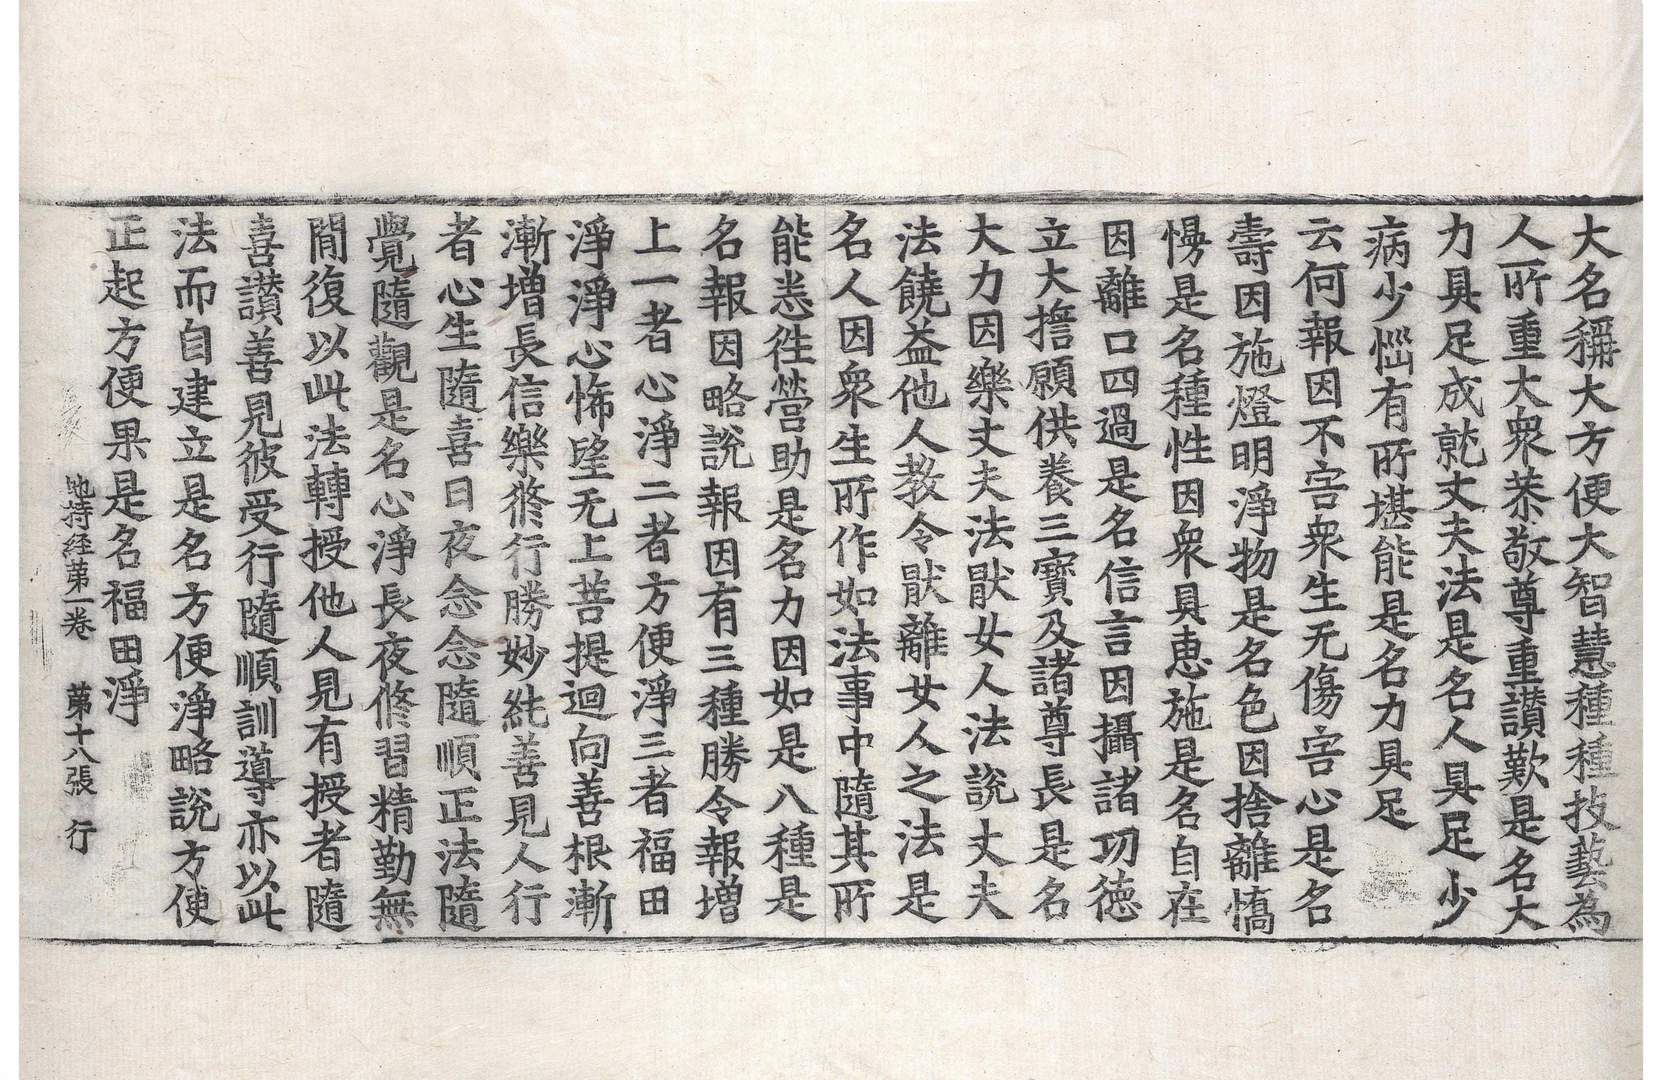 大名稱大方便大智慧種種技藝為
人所重大衆恭敬尊重讃歎是名大
力具足成就丈夫法是名人具足少
病少惱有所堪能是名力具足
云何報因不害衆生无傷害心是名
壽因施燈明淨物是名色因捨離憍
慢是名種性因衆具恵施是名自在
因離口四過是名信言因攝諸功徳
立大擔願供養三寳及諸尊長是名
大力因樂丈夫法猒女人法說丈夫
法饒益他人教令猒離女人之法是
名人因衆生所作如法事中隨其所
能悉徃營助是名力因如是八種是
名報因略說報因有三種勝令報增
上一者心淨二者方便淨三者福田
淨淨心悕望无上菩提迴向善根漸
漸增長信樂修行勝妙純善見人行
者心生隨喜日夜念念隨順正法隨
覺隨觀是名心淨長夜修習精勤無
閒復以此法轉授他人見有授者隨
喜讃善見彼受行隨順訓導亦以此
法而自建立是名方便淨略說方便
正起方便果是名福田淨
地持経苐一卷 苐十八張 行